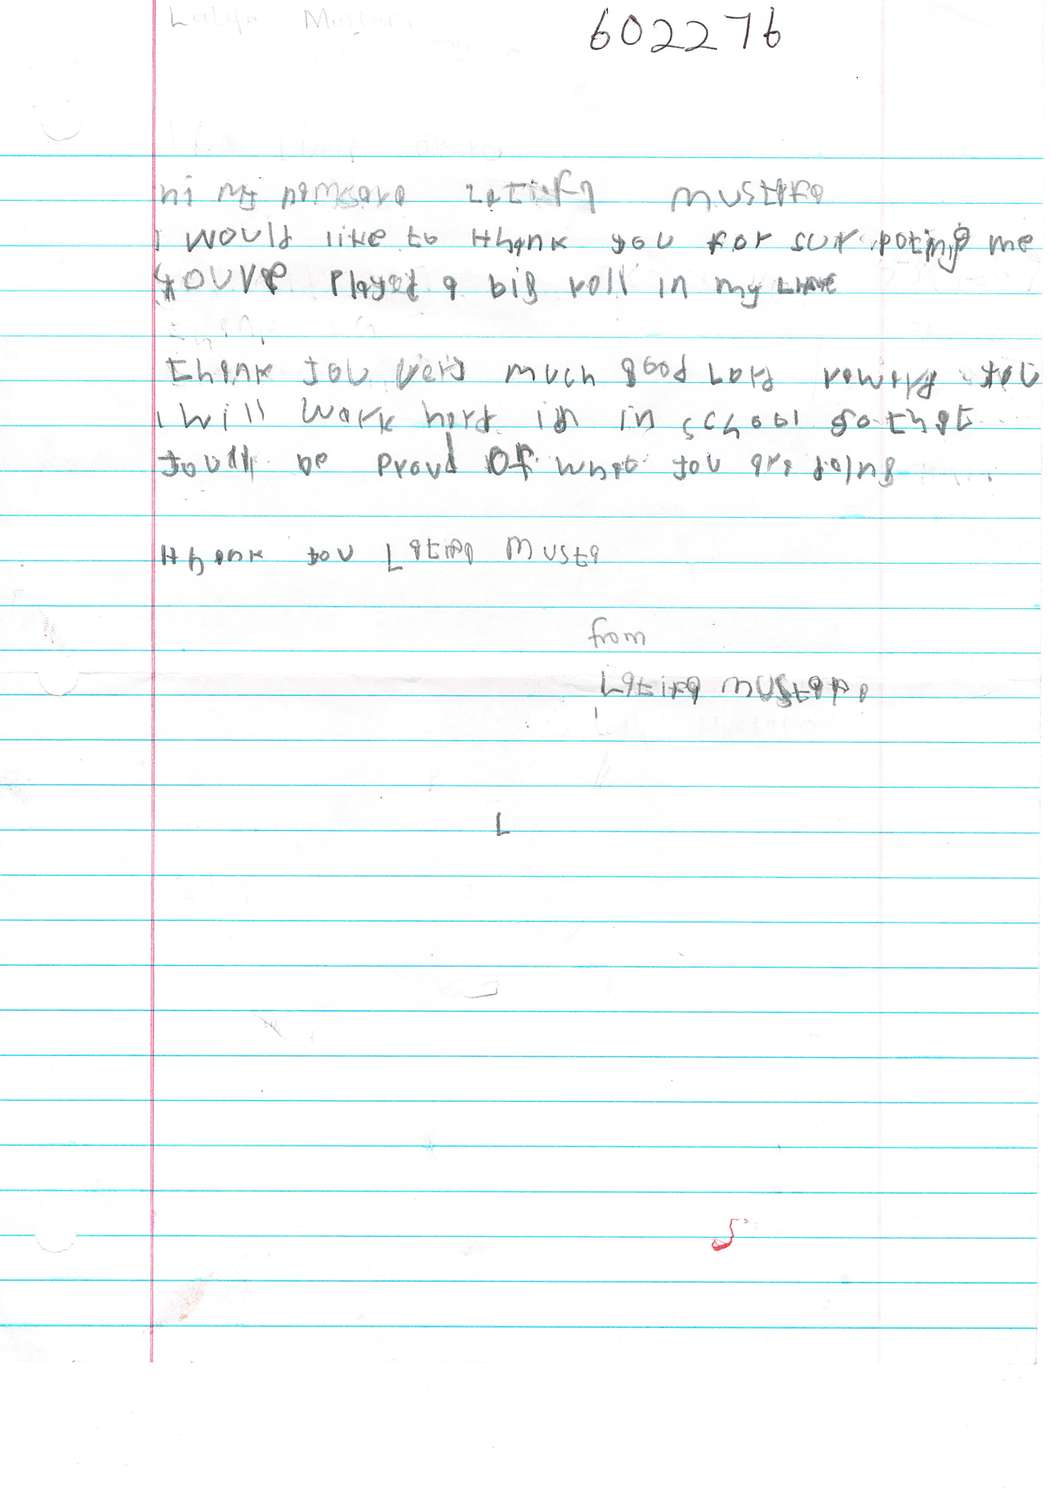 602276
hi my Latifa Mustafa
I would like to thank you for surpoting me
youve played a big roll in my
thank you very much good Lord reward you
i will work hard in in school so that
youll be proud of what you are doing
thank you Latifa Musta
from
Latifa Mustapa
L